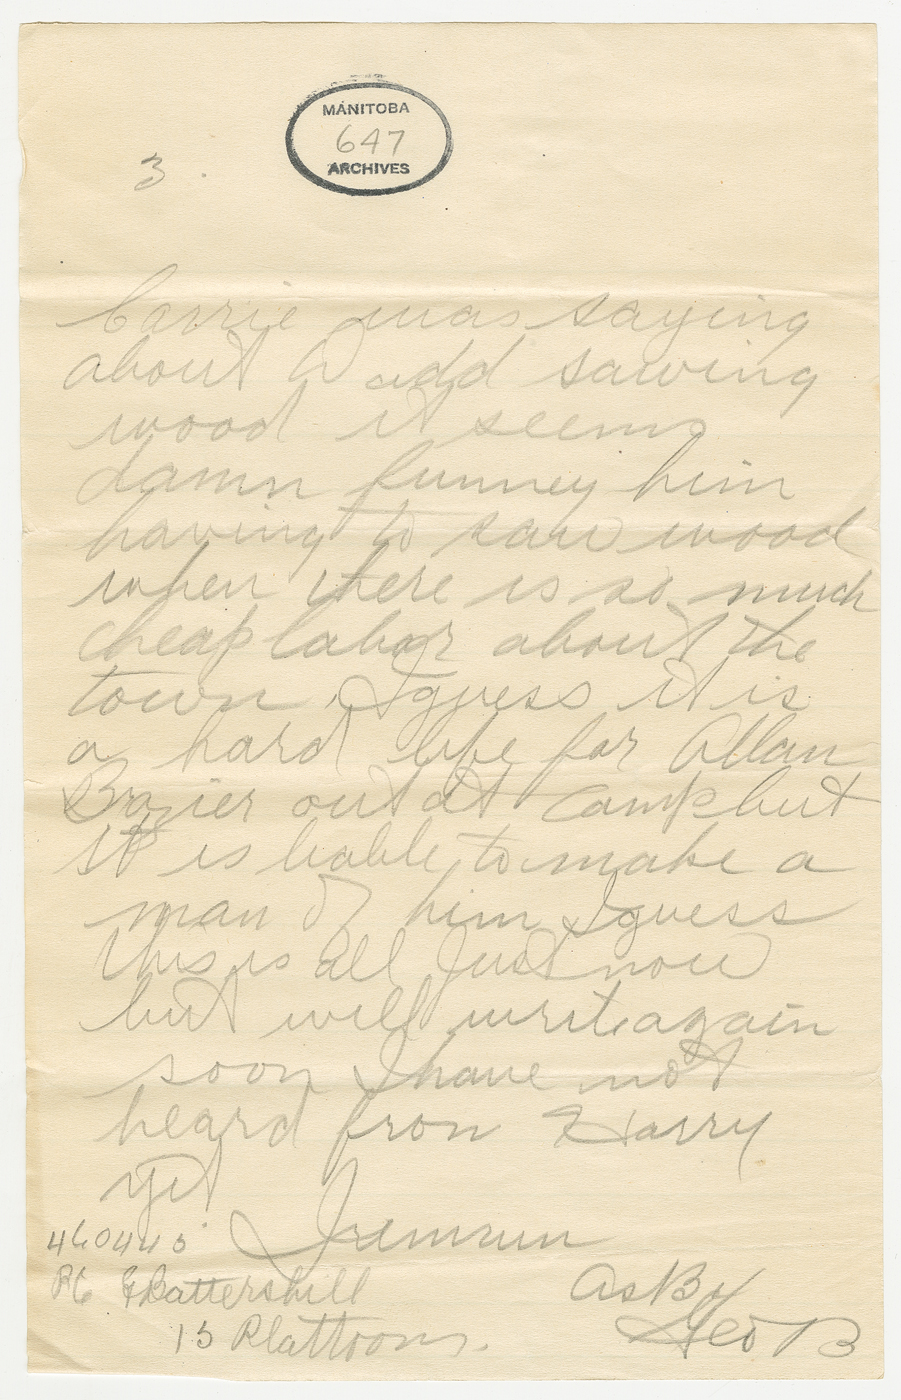 MANITOBA
647
ARCHIVES
3.
Carrie was saying
about Dadd sawing
wood it seems
damn funney him
having to saw wood
when there is so much
cheap labor about the
town. I guess it is
a hard life for Allan
Brazier out at Camp but
It is liable to make a
man of him I guess
this is all Just now
but will write again
soon I have not
heard fron Harry
yet
I remain
460445
Pte G Battershill
15 Plattoon.
As By
Geo B